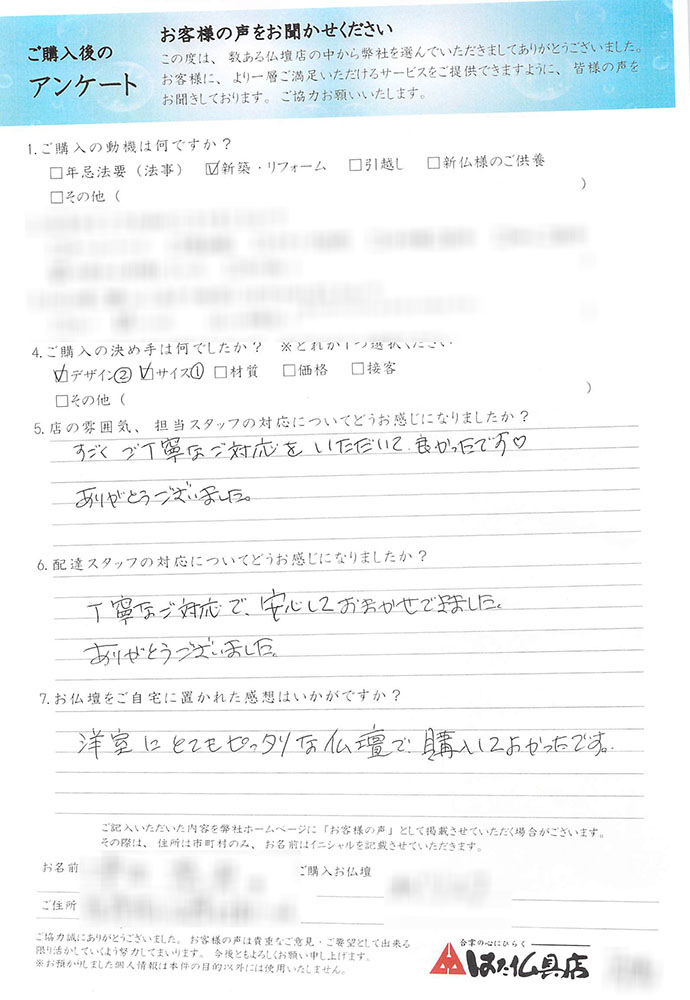 ご購入後の
アンケート
お客様の声をお聞かせください
この度は、数ある仏壇店の中から弊社を選んでいただきましてありがとうございました。
お客様に、より一層ご満足いただけるサービスをご提供できますように、皆様の声を
お聞きしております。ご協力お願いいたします。
1.ご購入の動機は何ですか?
□年忌法要(法事) ☑新築・リフォーム □引越し □新仏様のご供養
□その他( )
4.ご購入の決め手は何でしたか? ※どれか1つ選択ください
☑デザイン② ☑サイズ① □材質 □価格 □接客
□その他( )
5.店の雰囲気、担当スタッフの対応についてどうお感じになりましたか?
すごくご丁寧なご対応をいただいて良かったです♡
ありがとうございました。
6.配達スタッフの対応についてどうお感じになりましたか?
丁寧なご対応で、安心しておまかせできました。
ありがとうございました。
7.お仏壇をご自宅に置かれた感想はいかがですか?
洋室にとてもピッタリな仏壇で、購入してよかったです。
ご記入いただいた内容を弊社ホームページに「お客様の声」として掲載させていただく場合がございます。
その際は、住所は市町村のみ、お名前はイニシャルを記載させていただきます。
お名前 ご購入お仏壇
ご住所
ご協力誠にありがとうございました。お客様の声は貴重なご意見・ご要望として出来る
限り活かしていくよう努力してまいります。今後ともよろしくお願い申し上げます。
※お預かりしました個人情報は本件の目的以外には使用いたしません。
合掌の心にひらく
はた仏具店